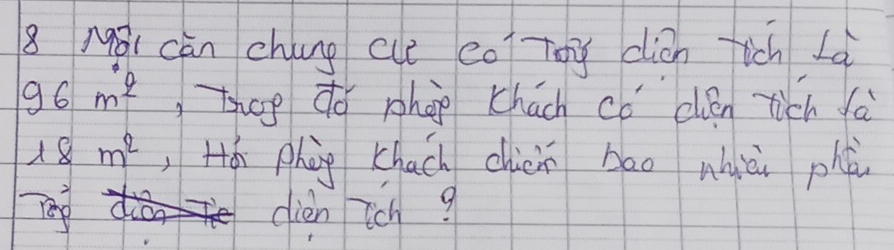 8 Một căn chung cư có tổng diện tích là
96 m², Trong đó phòng khách có diện tích là
18 m², Hỏi phòng khách chiếm bao nhiêu phần
Tổng diện tích ?